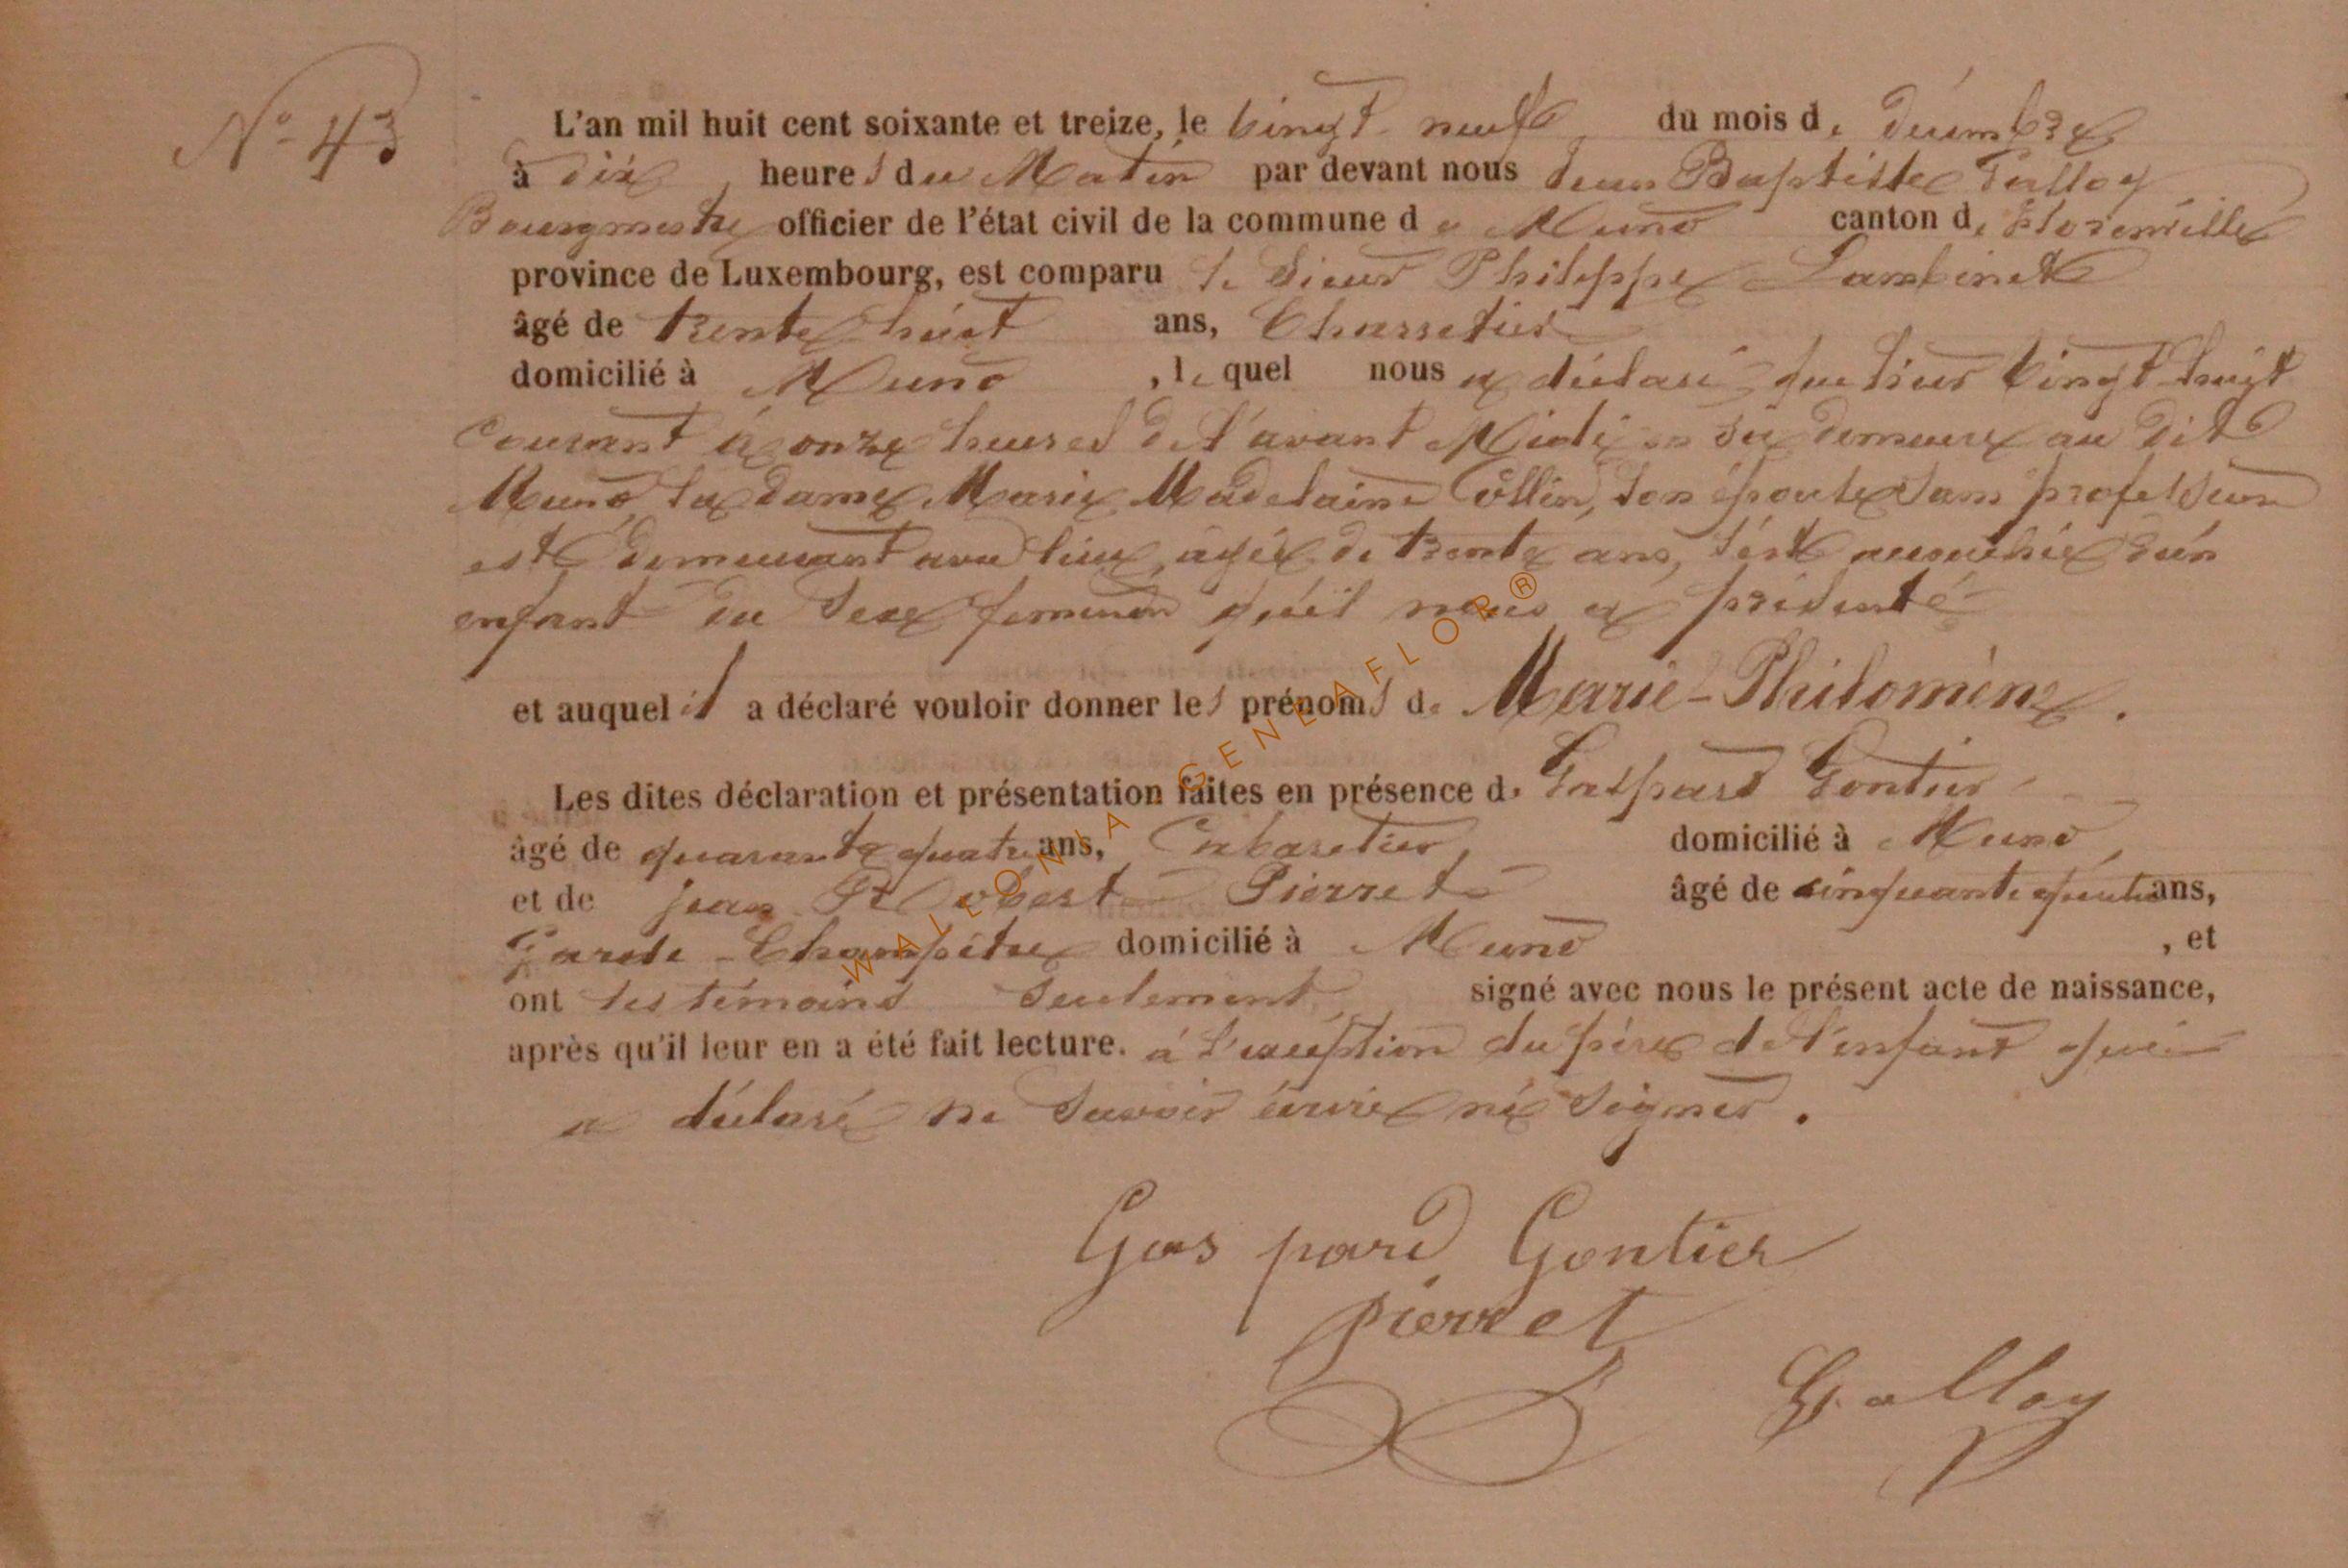 N° 43
L'an mil huit cent soixante et treize, le vingt neuf du mois de décembre
à dix heures du Matin par devant nous Jean Baptiste Galloy
Bourgmestre officier de l'état civil de la commune de Muno canton de Florenville
province de Luxembourg, est comparu le Sieur Philippe Lambinet
âgé de trente huit ans, Charretier
domicilié à Muno, lequel nous a déclaré que hier vingt huit
courant à onze heures de l'avant Midi en sa demeure au dit
Muno, la dame Marie Madelaine Collin, son épouse sans profession
et demeurant avec lui, agée de trente ans, s'est accouchée d'un
enfant du sexe feminin qu'il nous a présenté
et auquel il a déclaré vouloir donner les prénoms de Marie-Philomène.
Les dites déclaration et présentation faites en présence de Gaspard Gontier
âgé de quarante quatre ans, Cabaretier, domicilié à Muno,
et de jean Robert Pierret âgé de cinquante quatre ans,
Garde-Champêtre domicilié à Muno, et
ont les témoins seulement, signé avec nous le présent acte de naissance,
après qu'il leur en a été fait lecture. à l'exception du père de l'enfant qui
a déclaré ne savoir écrire ni signer.
Gas pard Gontier
Pierret
Galloy
WALLONIA GENEAFLOR®